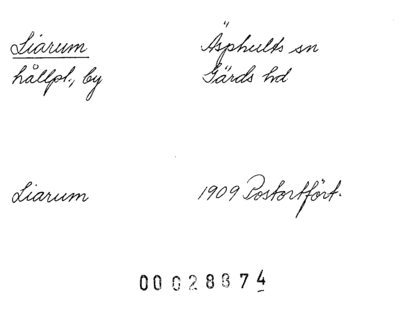 Liarum
Äsphults sn
hållpl., by
Gärds hd
Liarum
1909 Postortfört.
00028874